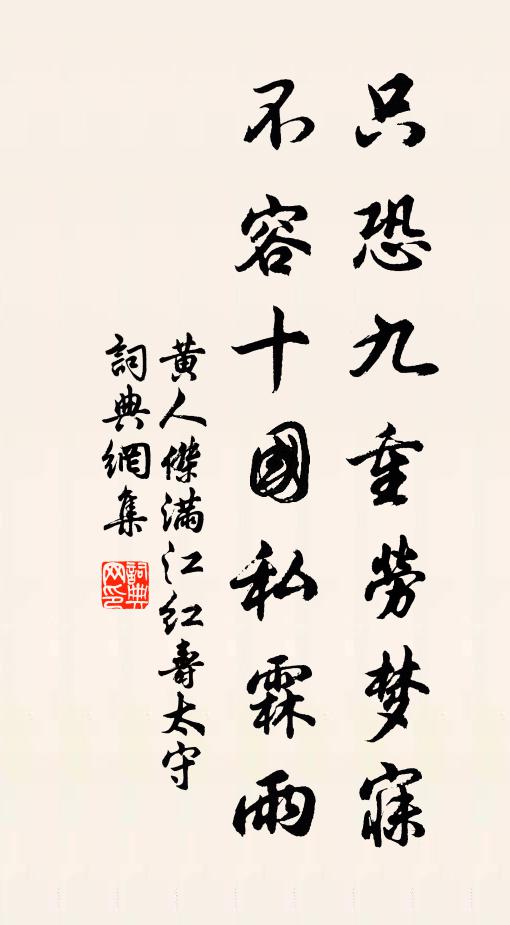 只恐九重劳梦寐
不容十國私霖雨
黄人傑满江红壽太守
詞典網集
詞典网印